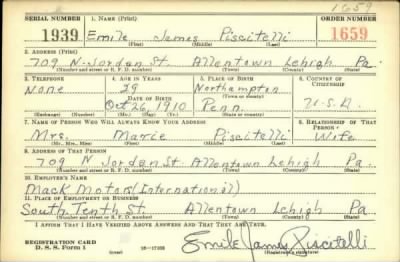 1659
SERIAL NUMBER 1. NAME (Print) ORDER NUMBER
1939 Emile James Piscitelli 1659
(First) (Middle) (Last)
2. ADDRESS (Print)
709 N-Jordan St. Allentown Lehigh Pa.
(Number and street or R. F. D. number) (Town) (County) (State)
3. TELEPHONE 4. AGE IN YEARS 5. PLACE OF BIRTH 6. COUNTRY OF CITIZENSHIP
None 29 Northampton
DATE OF BIRTH (Town or county)
Oct 26, 1910 Penn. U.S.A.
(Exchange) (Number) (Mo.) (Day) (Yr.) (State or country)
7. NAME OF PERSON WHO WILL ALWAYS KNOW YOUR ADDRESS 8. RELATIONSHIP OF THAT PERSON
Mrs. Marie Piscitelli Wife
(Mr., Mrs., Miss) (First) (Middle) (Last)
9. ADDRESS OF THAT PERSON
709 N Jordan St. Allentown Lehigh Pa.
(Number and street or R. F. D. number) (Town) (County) (State)
10. EMPLOYER'S NAME
Mack Motors (International)
11. PLACE OF EMPLOYMENT OR BUSINESS
South Tenth St. Allentown Lehigh Pa.
(Number and street or R. F. D. number) (Town) (County) (State)
I AFFIRM THAT I HAVE VERIFIED ABOVE ANSWERS AND THAT THEY ARE TRUE.
REGISTRATION CARD
D. S. S. Form 1 (over) Emile James Piscitelli
(Registrant's signature)